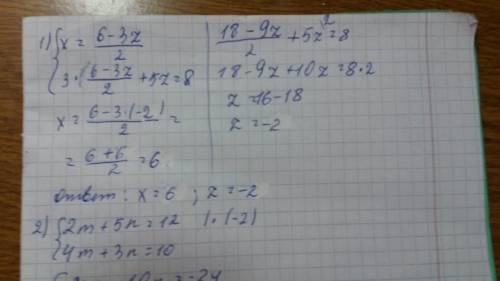 1) { x = (6-3z)/2
3·(6-3z)/2 + 5z = 8
x = (6-3·(-2))/2 =
= (6+6)/2 = 6
(18-9z)/2 + 5z = 8
2
18-9z+10z = 8·2
z = 16-18
z = -2
ответ: x = 6 ; z = -2
2) { 2m + 5n = 12 | · (-2)
4m + 3n = 10